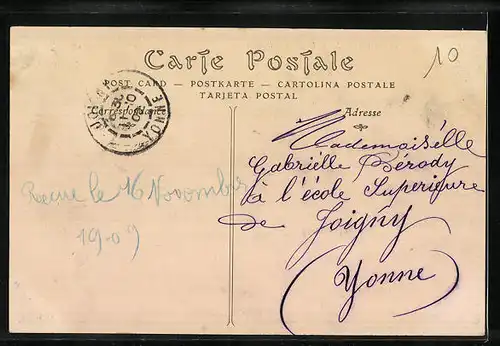 Carte Postale
POST CARD — POSTKARTE — CARTOLINA POSTALE
TARJETA POSTAL
Correspondance
Adresse
10
YONNE
Mademoiselle
Gabrielle Pérody
à l'école Superieure
de Joigny
(Yonne)
Recue le 16 Novembre
1909